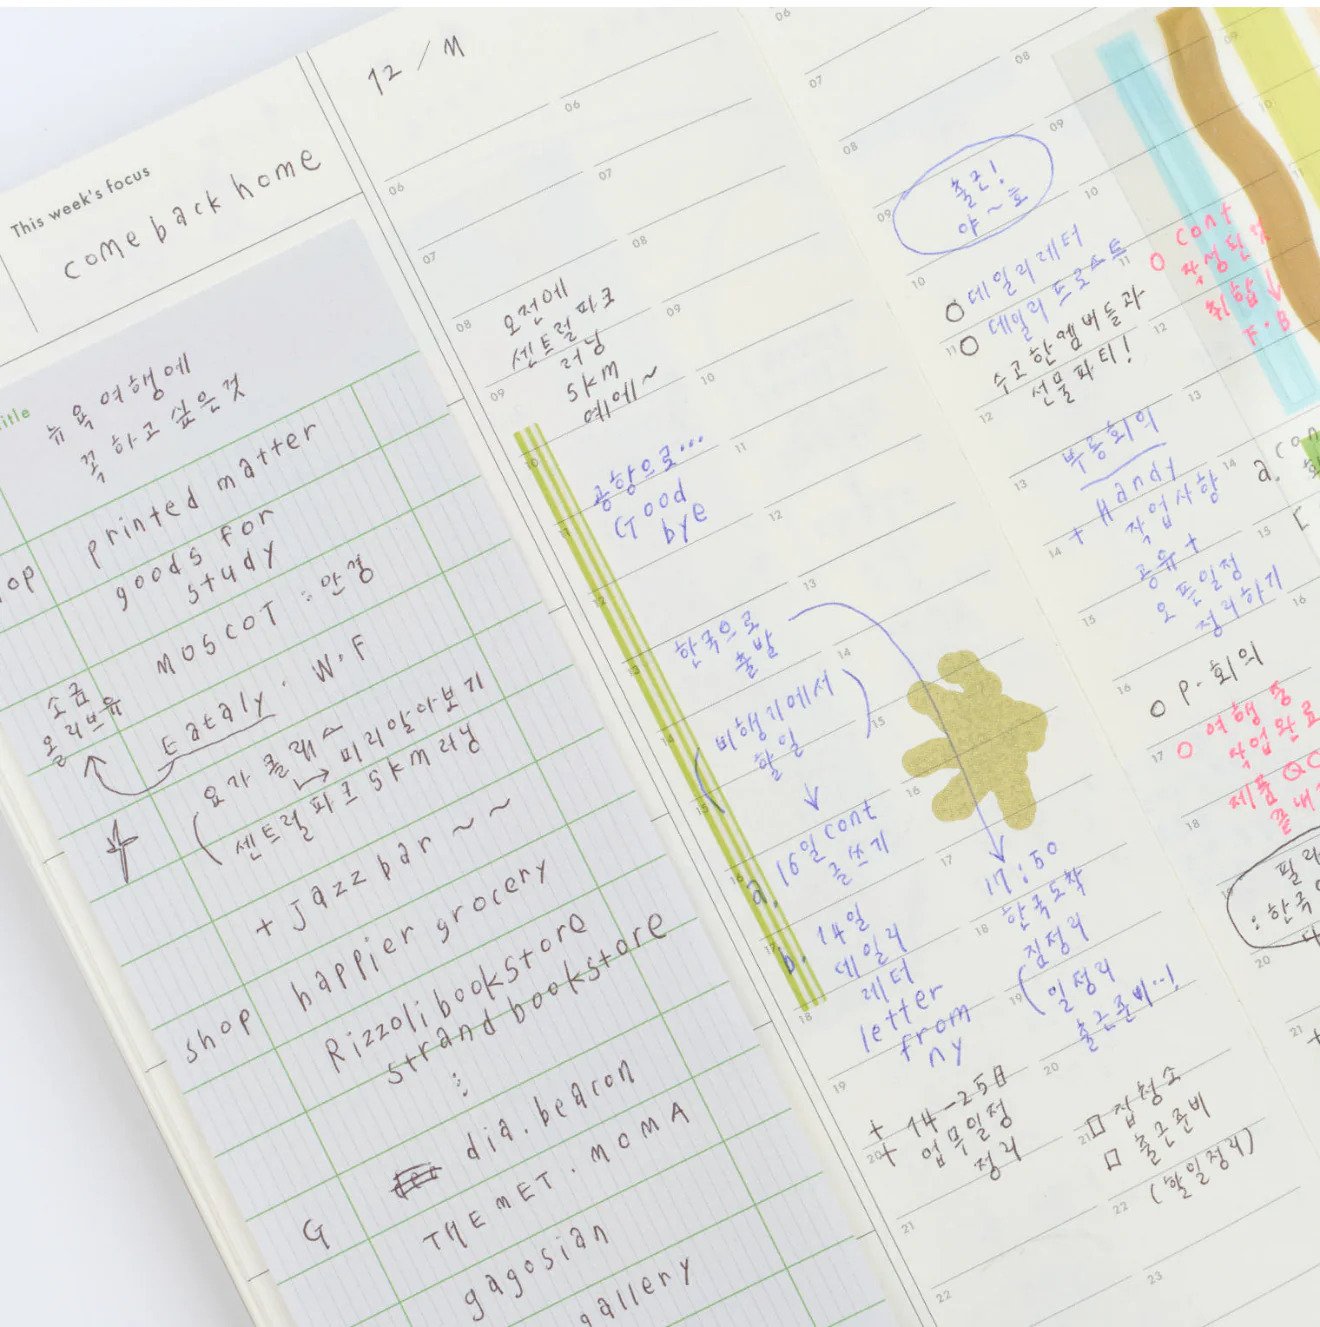 This week's focus
come back home
뉴욕 여행에
꼭 하고 싶은 것
printed matter
goods for
study
MOSCOT : 안경
소금
올리브유
Eataly . W.F
요가 클래스
→ 미리알아보기
( 센트럴파크 5km 러닝
+ jazz bar ~~
happier grocery
shop
Rizzoli bookstore
strand bookstore
:
dia. beacon
THE MET . MOMA
G
gagosian
gallery
12 / M
06
07
08
09
10
11
12
13
14
15
16
17
18
19
20
21
22
오전에
센트럴 파크
러닝
5km
예에~
공항으로...
Good
bye
한국으로
출발
( 비행기에서 )
할일
↓
a. 16일 cont
글쓰기
b. 14일
데일리
레터
letter
from
ny
+ 14-25日
+ 업무일정
정리
06
07
08
09
10
11
12
13
14
15
16
17
18
19
20
21
22
23
17:50
한국도착
( 짐정리
일정리
출근준비..!
□ 집청소
□ 출근준비
(할일정리)
06
07
08
09
10
11
12
13
14
15
16
17
18
20
21
출근!
야~호
O 데일리레터
O 데일리 프로스트
수고한멤버들과
선물파티!
부등회의
+ Handy
작업사항
공유 +
오픈일정
정리하기
O P. 회의
O 여행 중
작업완료
제품 QC
O cont
작성된 것
취합 ↓
F.B
a. con
: 한국